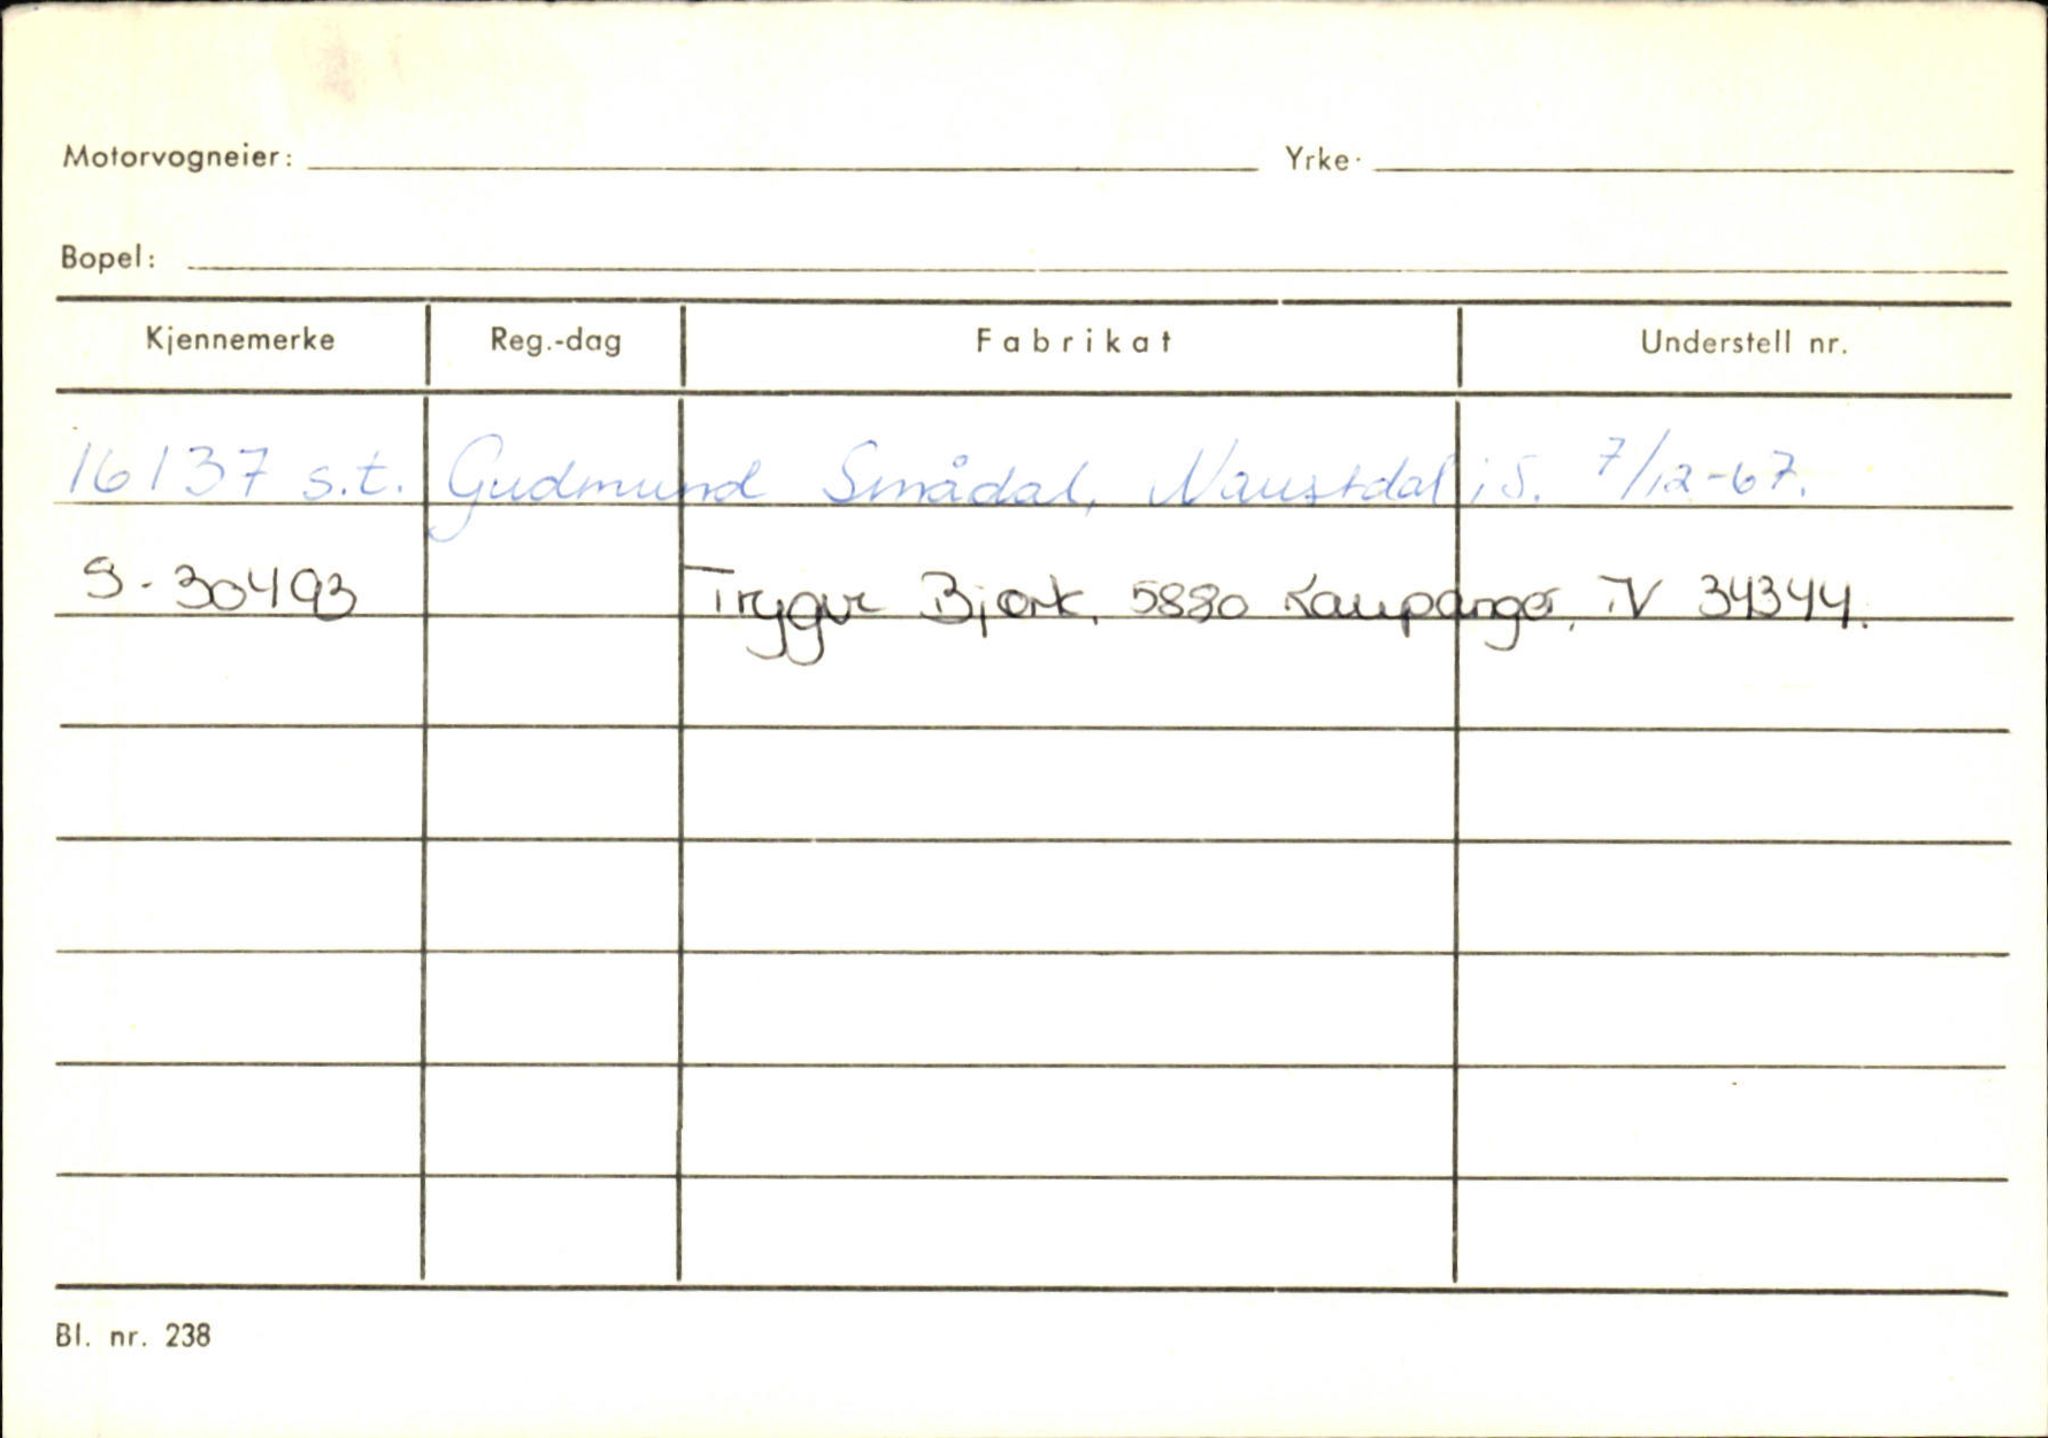 Motorvogneier: Yrke.
Bopel:
Kjennemerke Reg.-dag Fabrikat Understell nr.
16137 s.t. Gudmund Smådal, Naustdal i S. 7/12-67.
S-30493 Trygve Bjørk, 5880 Kaupanger, TV 34344.
Bl. nr. 238